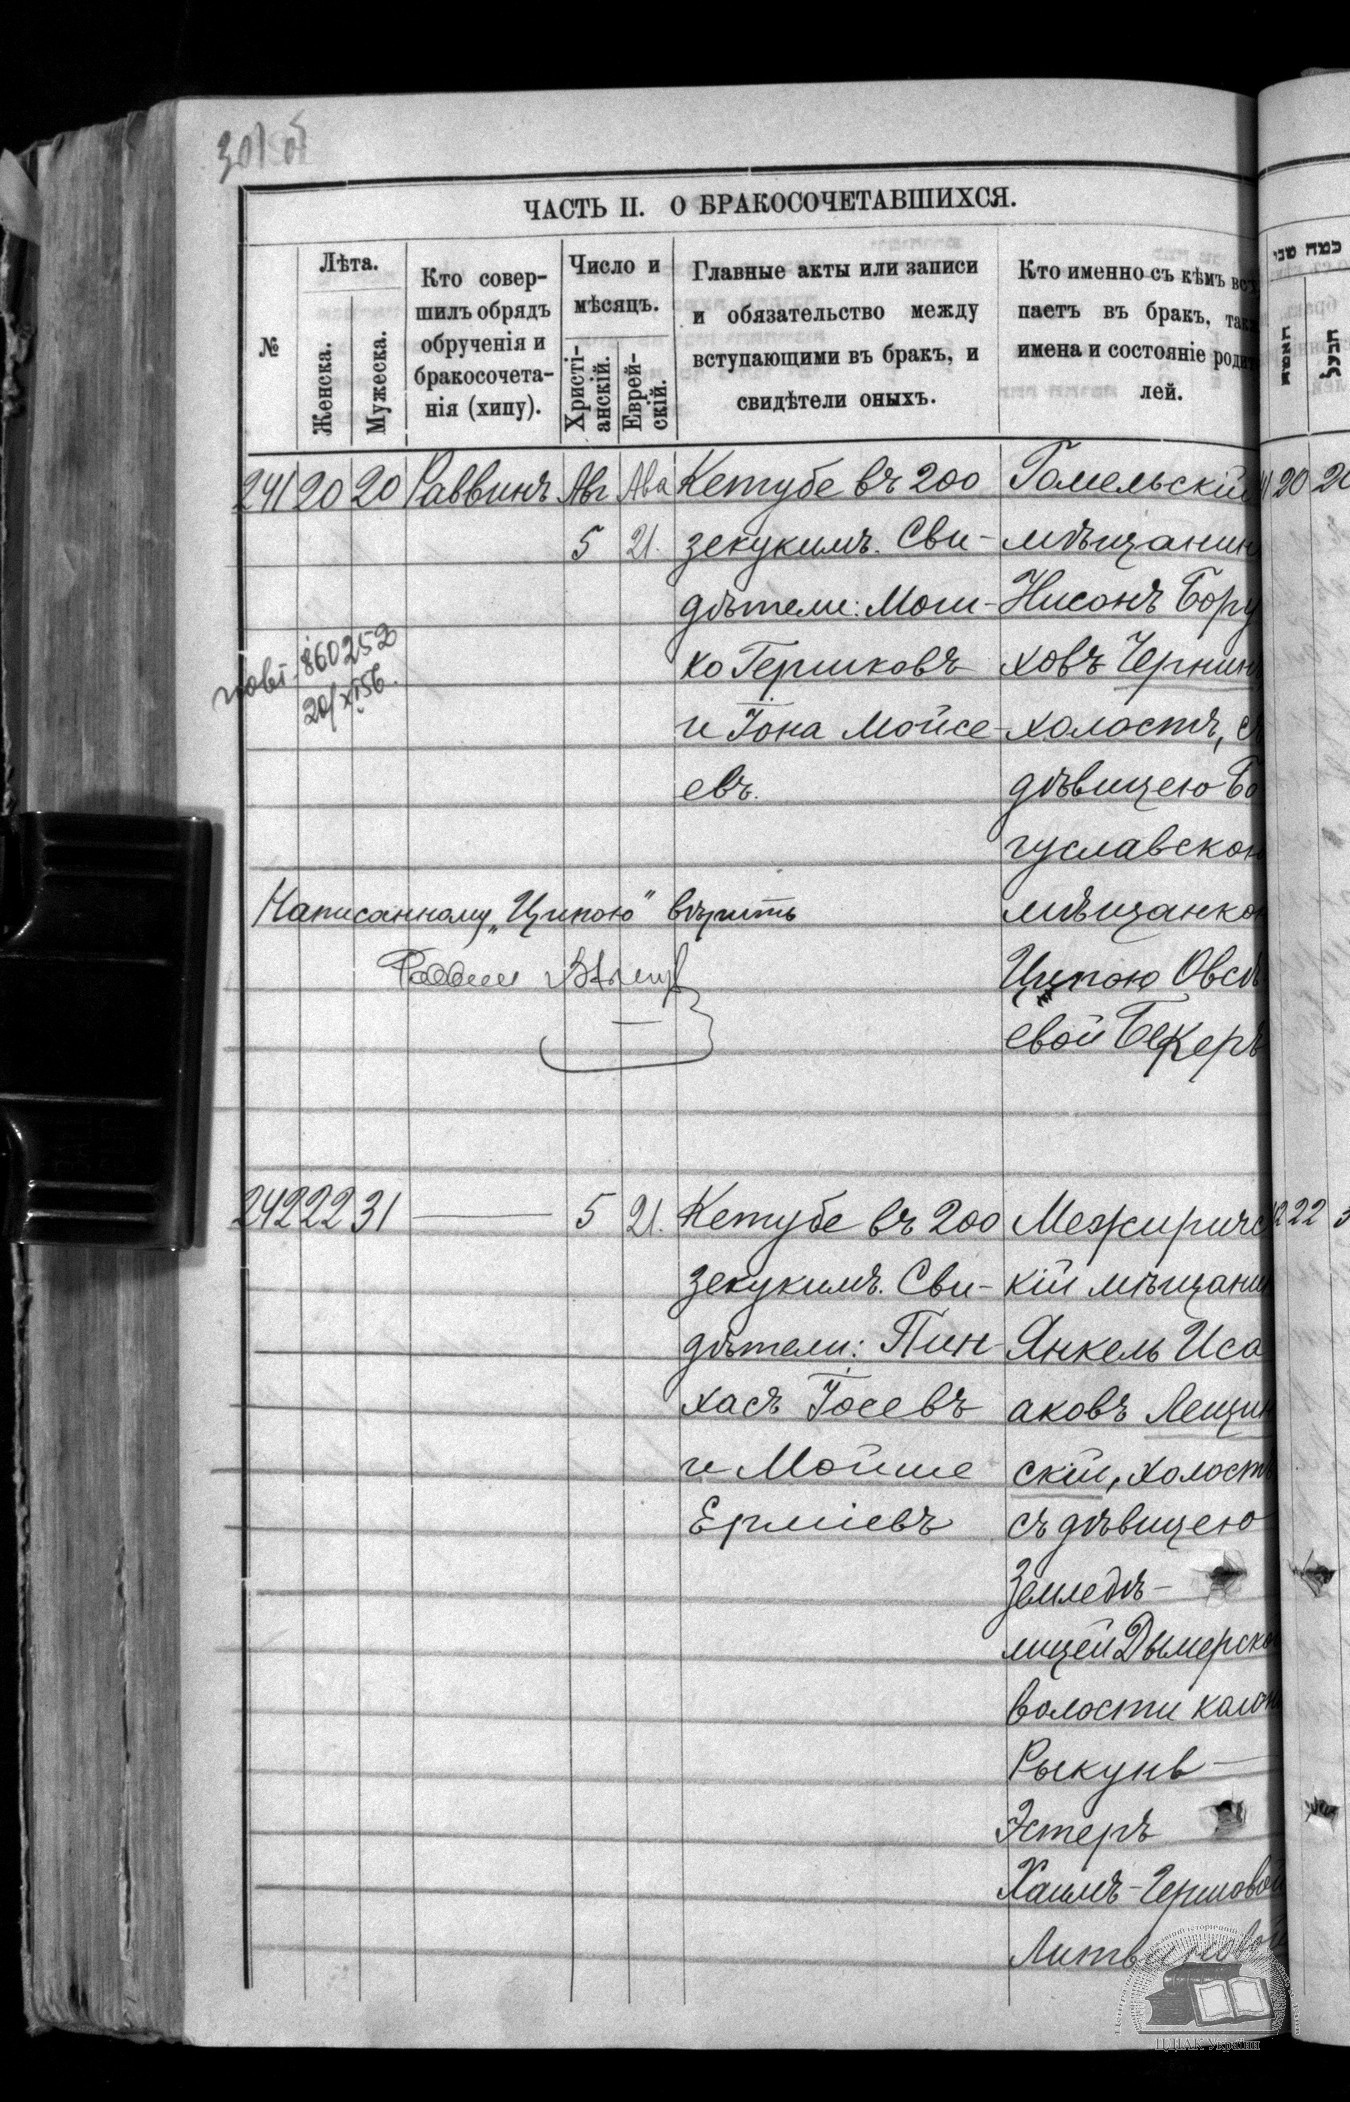 301 об
ЧАСТЬ II. О БРАКОСОЧЕТАВШИХСЯ.
№
Лѣта.
Женска.
Мужеска.
Кто совер-
шилъ обрядъ
обрученія и
бракосочета-
нія (хипу).
Число и
мѣсяцъ.
Христі-
анскій.
Еврей-
скій.
Главные акты или записи
и обязательство между
вступающими въ бракъ, и
свидѣтели оныхъ.
Кто именно съ кѣмъ вст
паетъ въ бракъ, такж
имена и состояніе родит
лей.
כמה שני
האשה
הבעל
241 20 20 Раввинъ Авг Ава
5 21.
Кетубе въ 200
зекукимъ. Сви-
дѣтели: Мош-
ко Гершковъ
и Іона Мойсе-
евъ.
Гомельскій
мѣщанин
Нисонъ Бору
ховъ Чернин
холостъ, съ
дѣвицею Бо
гуславскою
мѣщанкою
Ципою Овсѣ
евой Бекеръ
20 20
860252
20/XI 56.
Написанному „Ципою" вѣрить
Раввин
242 22 31 — 5 21.
Кетубе въ 200
зекукимъ. Сви-
дѣтели: Пин-
хасъ Іосевъ
и Мойше
Ерміевъ
Межиричс
кій мѣщани
Янкель Иса
аковъ Лещин
скій, холостъ
съ дѣвицею
Земледѣ-
лицей Дымерской
волости колон
Рыкунь
Эстеръ
Хаимъ-Гершовой
Литвиновой
22 3
ЦДІАК України